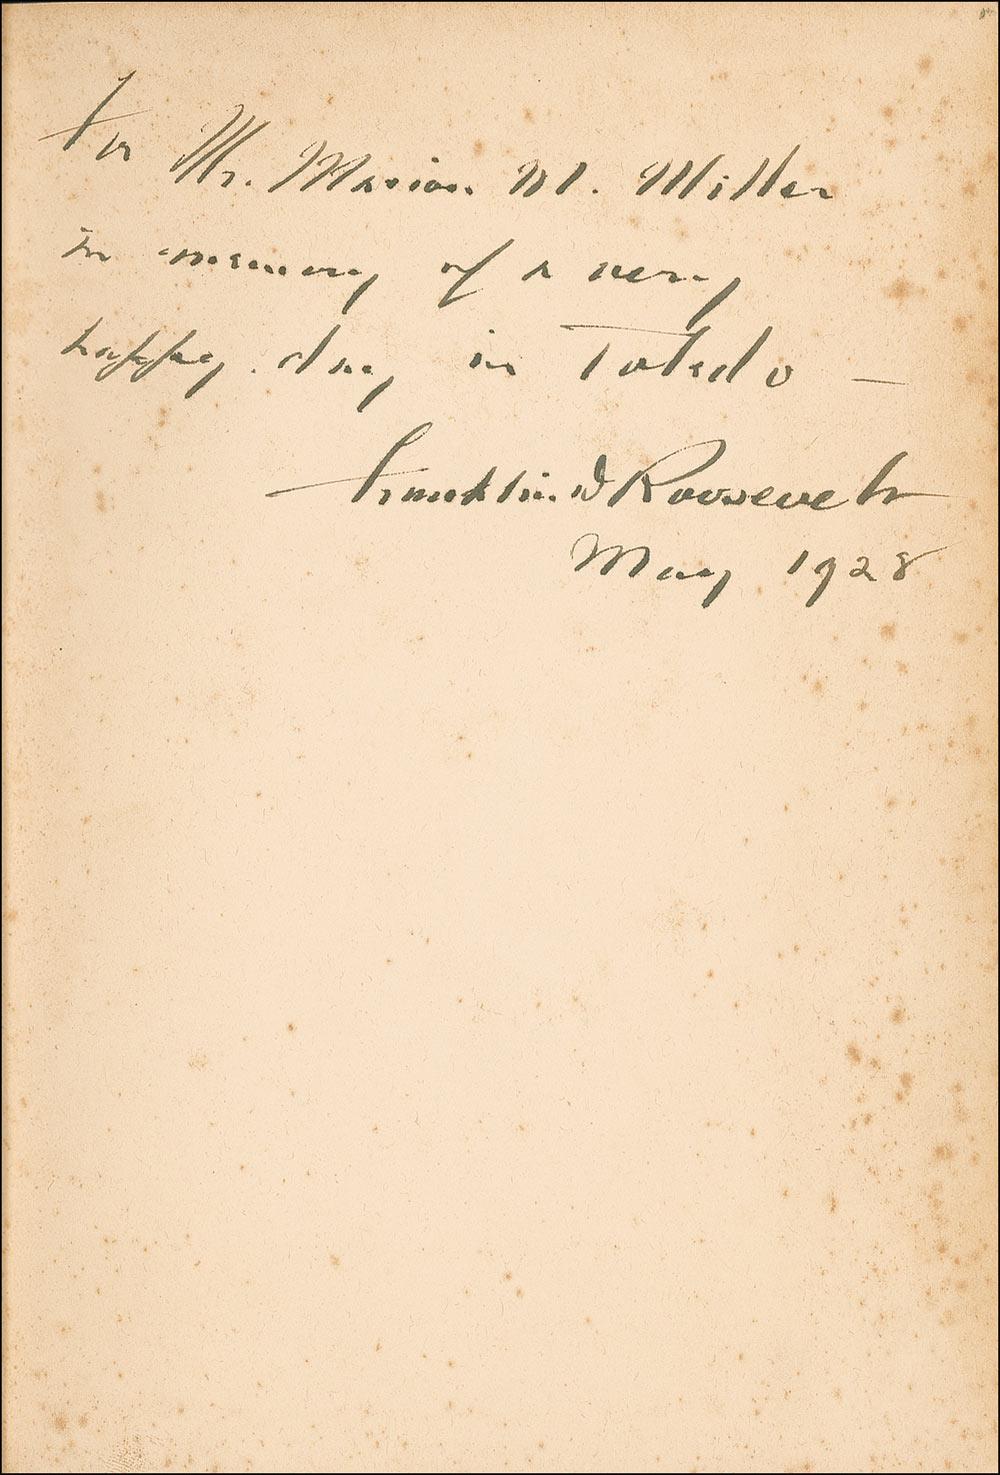 For Mr. Marion M. Miller
in memory of a very
happy day in Toledo —
Franklin D Roosevelt
May 1928